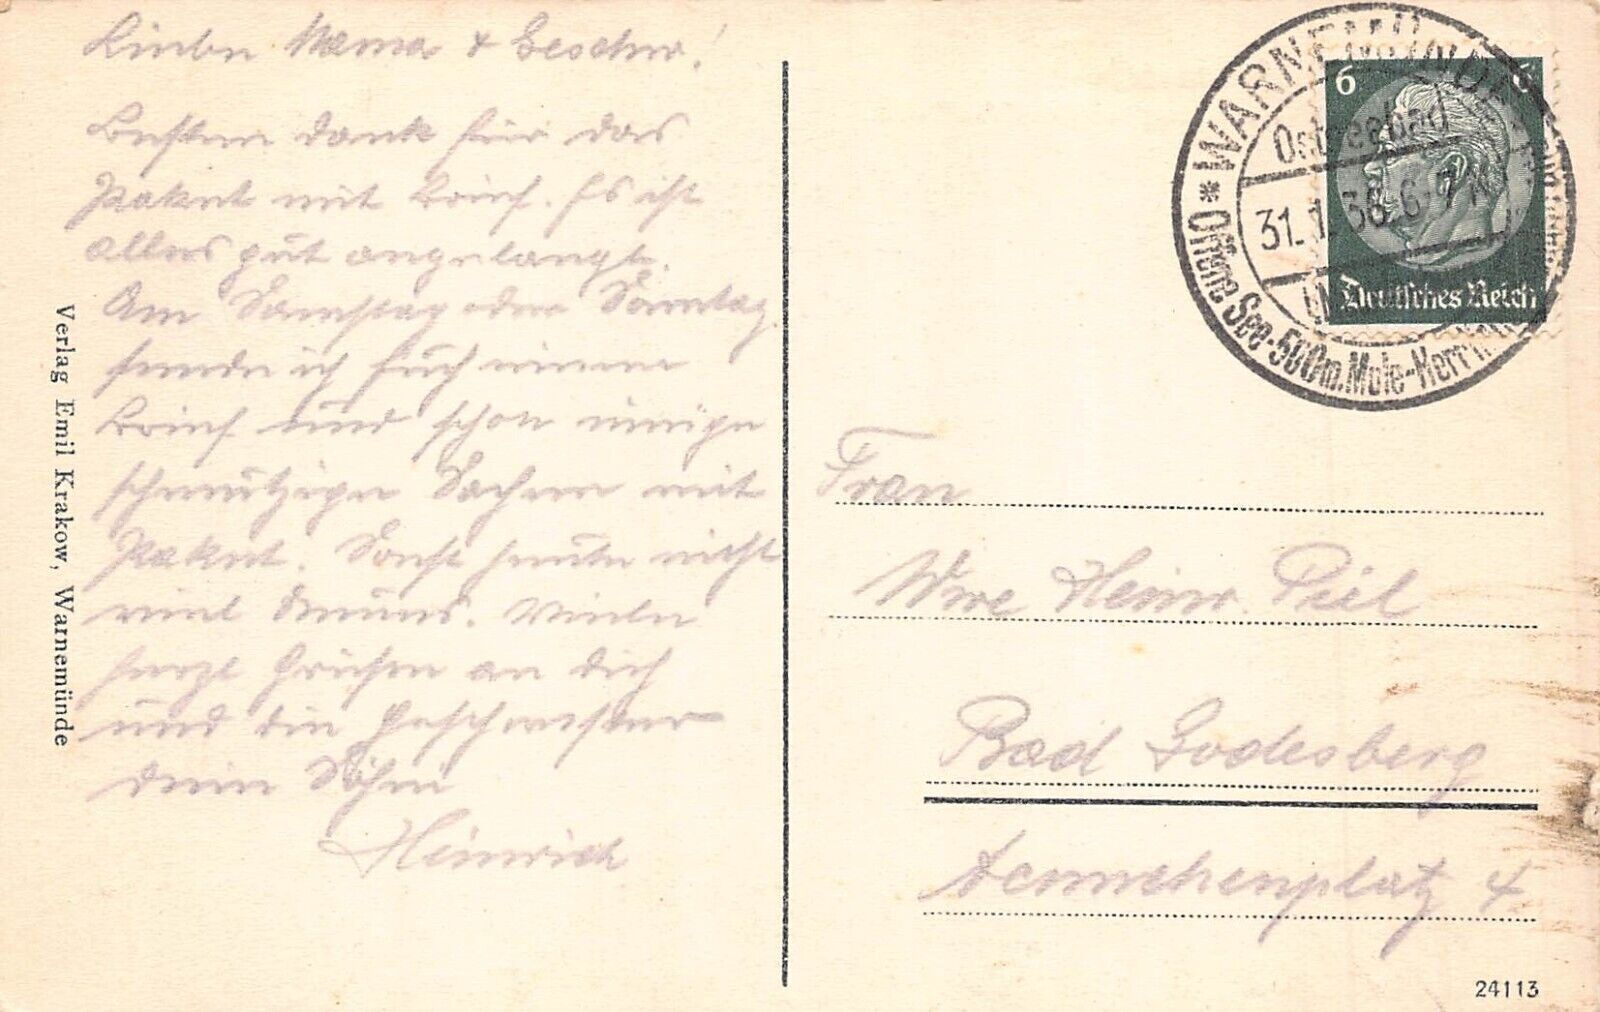 Lieben Mama + Geschw.!
Besten Dank für das
Paket mit Brief. Es ist
alles gut angelangt.
Am Samstag oder Sonntag
sende ich Euch einen
Brief und schon einige
schmutzige Sachen mit
Paket. Sonst heute nicht
viel Neues. Viele
herzl. Grüßen an Dich
und die Geschwister
Dein Sohn
Heinrich
Verlag Emil Krakow, Warnemünde
WARNEMÜNDE
Ostseebad
31.1.36.6-7
Offene See-500m.Mole-Herrl.
6
Deutsches Reich
Frau
Wwe Heinr. Peil
Bad Godesberg
Aennchenplatz 4
24113